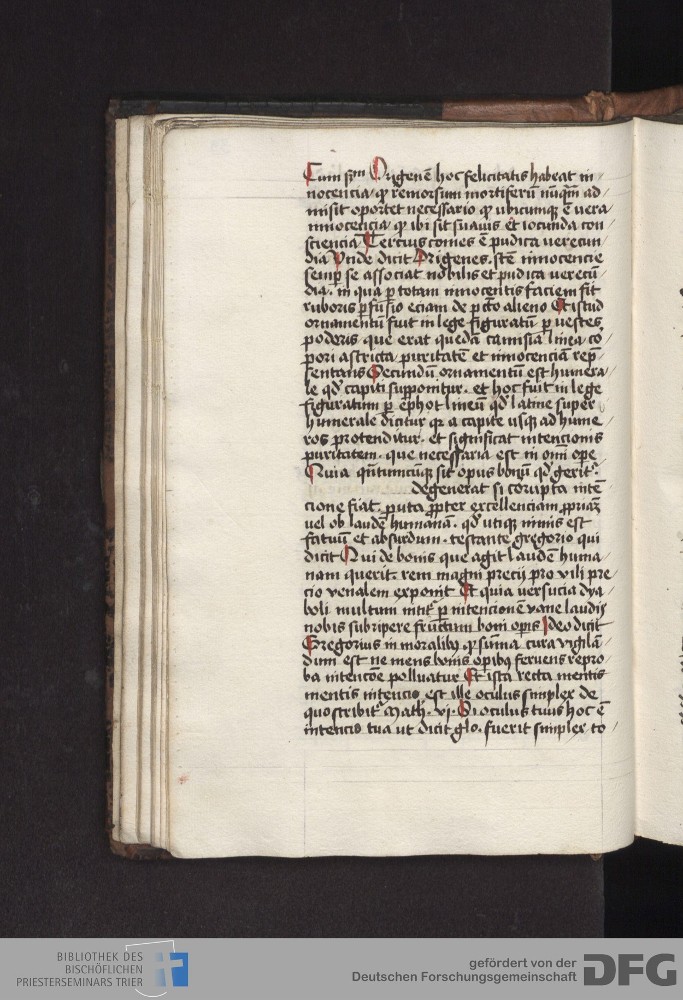 Cum scdm Origenē hoc felicitatis habeat in
nocencia, qp remorsum mortiferū nūqm̄ ad
misit oportet necessario qp ubicumqꝫ ē vera
innocencia, qp ibi sit suauis et iocunda con
sciencia Tercius comes ē pudica verecun
dia Unde dicit Origenes. stē innocencie
semp se associat nobilis et pudica verecū
dia. in qua p totam innocentis faciem fit
ruboris pfusio eciam de pcto alieno Et istud
ornamentū fuit in lege figuratū p vestes
poderis que erat quedā camisia linea co
pori astricta puritatē et innocenciā rep̄
sentans Secundū ornamentū est humera
le qd capiti supponitur. et hoc fuit in lege
figuratum p ephot lineū qd latine super
humerale dicitur qr a capite usqꝫ ad hume
ros protenditur. et significat intencionis
puritatem. que necessaria est in omi ope
Quia qn̄tumcūqꝫ sit opus bonū qd gerit.
degenerat si corupta intē
cione fiat. puta ppter excellenciam ppriaꝫ
vel ob laudē humanā. qd utiqꝫ nimis est
fatuū et absurdum. testante gregorio qui
dicit Qui de bonis que agit laudē huma
nam querit. rem magni precij pro vili pre
cio venalem exponit Et quia versucia dya
boli multum nitit p intencionē vane laudis
nobis subripere fructum boni opis Ideo dicit
Gregorius in moralibꝫ qp summa cura vigilā
dum est ne mens bonis opibꝫ fervens repro
ba intencōe polluatur Et ista recta mentis
mentis intencio est ille oculus simplex de
quo scribit Math. vi. Si oculus tuus hoc ē
intencio tua ut dicit glo. fuerit simplex to
BIBLIOTHEK DES
BISCHÖFLICHEN
PRIESTERSEMINARS TRIER
gefördert von der
Deutschen Forschungsgemeinschaft
DFG